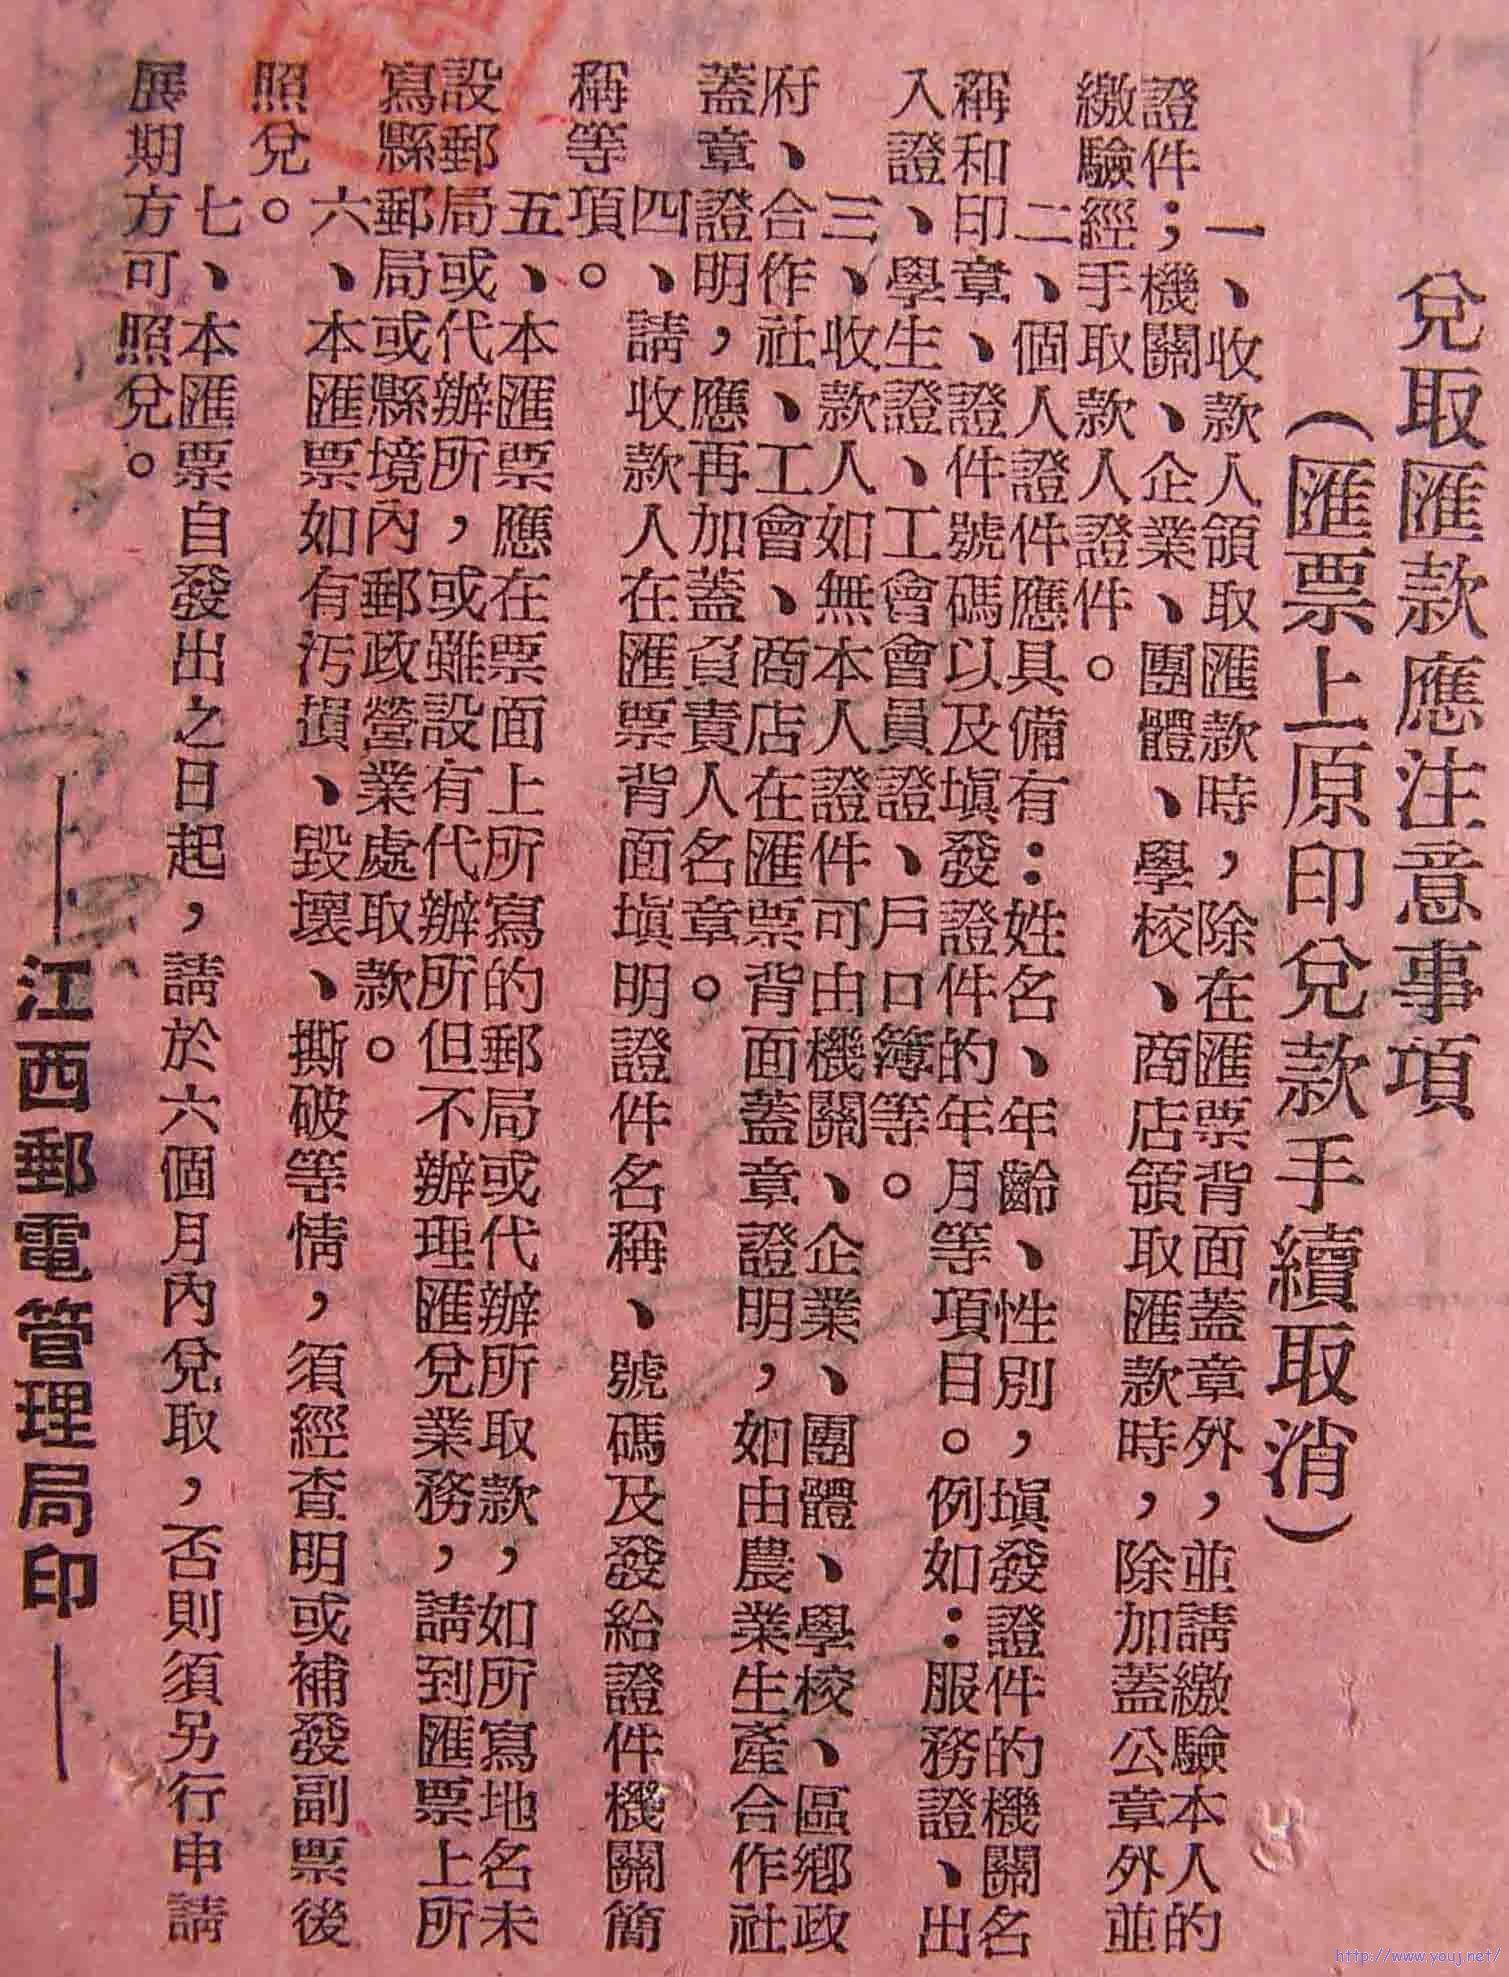 兌取匯款應注意事項
（匯票上原印兌款手續取消）
一、收款人領取匯款時，除在匯票背面蓋章外，並請繳驗本人的
證件；機關、企業、團體、學校、商店領取匯款時，除加蓋公章外並
繳驗經手取款人證件。
二、個人證件應具備有：姓名、年齡、性別，塡發證件的機關名
稱和印章、證件號碼以及塡發證件的年月等項目。例如：服務證、出
入證、學生證、工會會員證、戶口簿等。
三、收款人如無本人證件可由機關、企業、團體、學校、區鄕政
府、合作社、工會、商店在匯票背面蓋章證明，如由農業生產合作社
蓋章證明，應再加蓋負責人名章。
四、請收款人在匯票背面塡明證件名稱、號碼及發給證件機關簡
稱等項。
五、本匯票應在票面上所寫的郵局或代辦所取款，如所寫地名未
設郵局或代辦所，或雖設有代辦所但不辦理匯兌業務，請到匯票上所
寫縣郵局或縣境內郵政營業處取款。
六、本匯票如有污損、毀壞、撕破等情，須經查明或補發副票後
照兌。
七、本匯票自發出之日起，請於六個月內兌取，否則須另行申請
展期方可照兌。
——江西郵電管理局印——
http://www.youj.net/